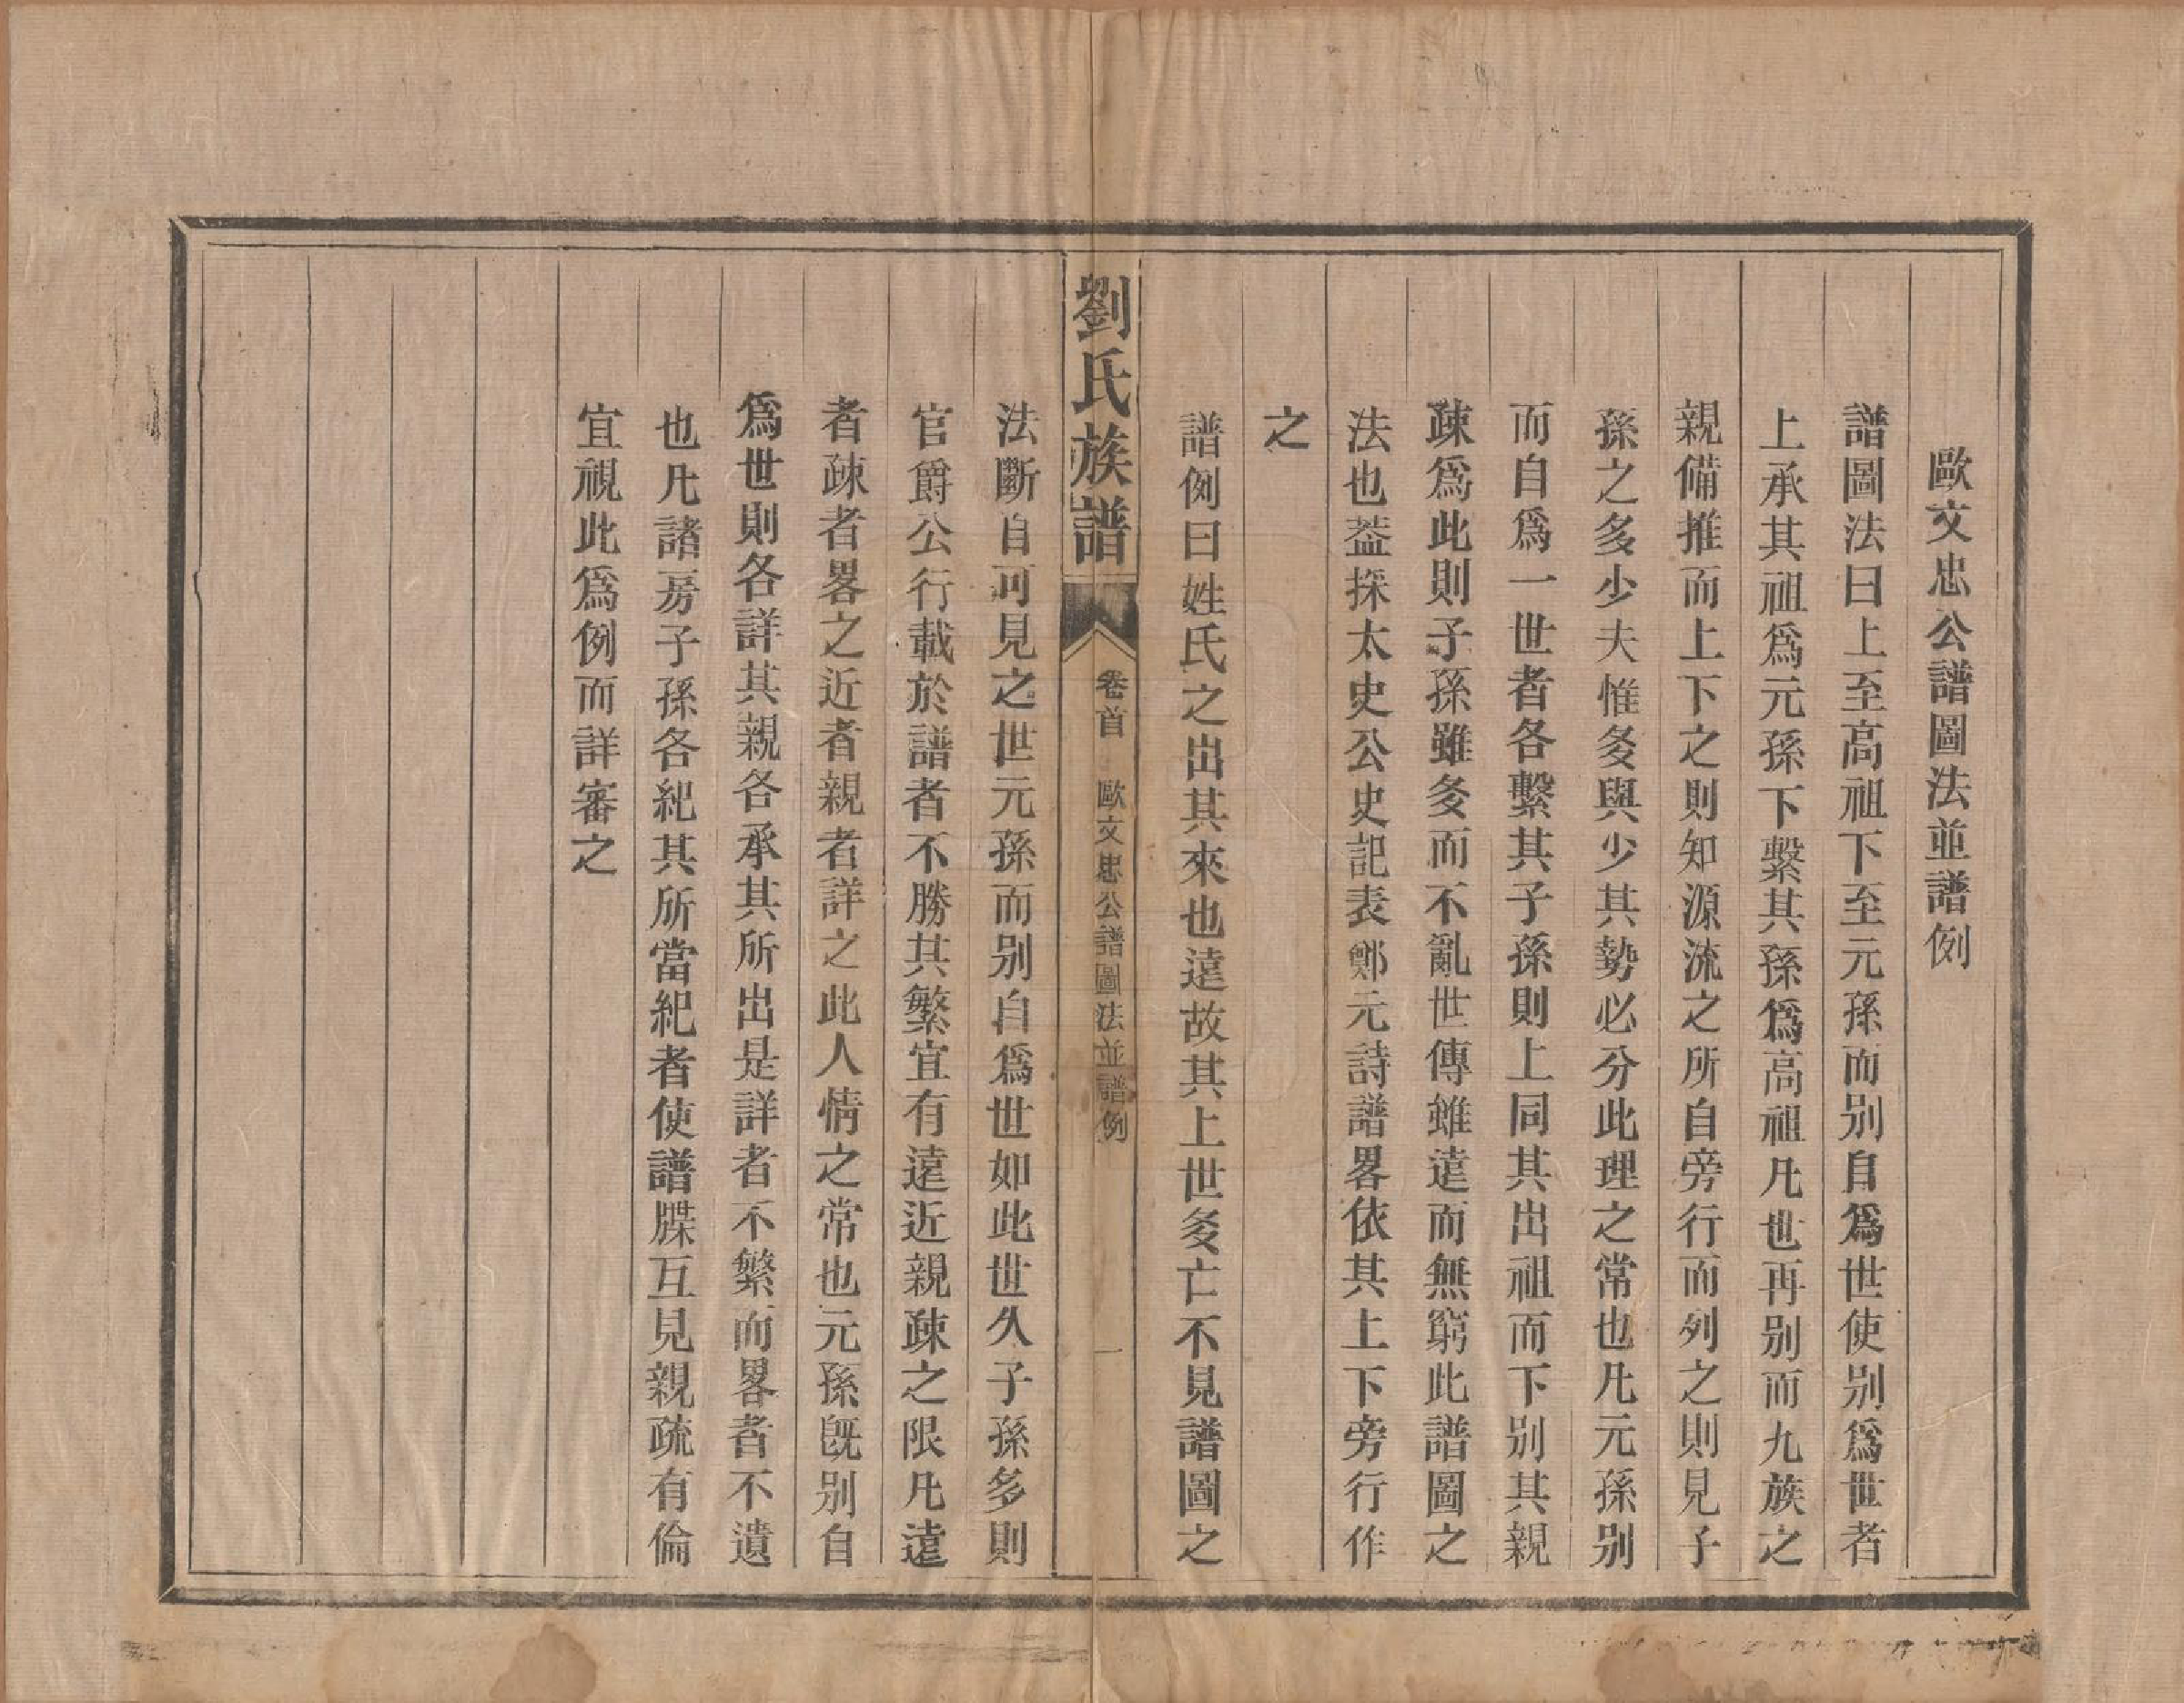 歐文忠公譜圖法並譜例
譜圖法曰上至高祖下至元孫而別自爲世使別爲世者
上承其祖爲元孫下繫其孫爲高祖凡世再別而九族之
親備推而上下之則知源流之所自旁行而列之則見子
孫之多少夫惟多與少其勢必分此理之常也凡元孫別
而自爲一世者各繫其子孫則上同其出祖而下別其親
疎爲此則子孫雖多而不亂世傳雖遠而無窮此譜圖之
法也葢採太史公史記表鄭元詩譜畧依其上下旁行作
之
譜例曰姓氏之出其來也遠故其上世多亡不見譜圖之
劉氏族譜
卷首
歐文忠公譜圖法並譜例
一
法斷自可見之世元孫而别自爲世如此世久子孫多則
官爵公行載於譜者不勝其繁宜有遠近親疎之限凡遠
者疎者畧之近者親者詳之此人情之常也元孫旣別自
爲世則各詳其親各承其所出是詳者不繁而畧者不遺
也凡諸房子孫各紀其所當紀者使譜牒互見親疏有倫
宜視此爲例而詳審之